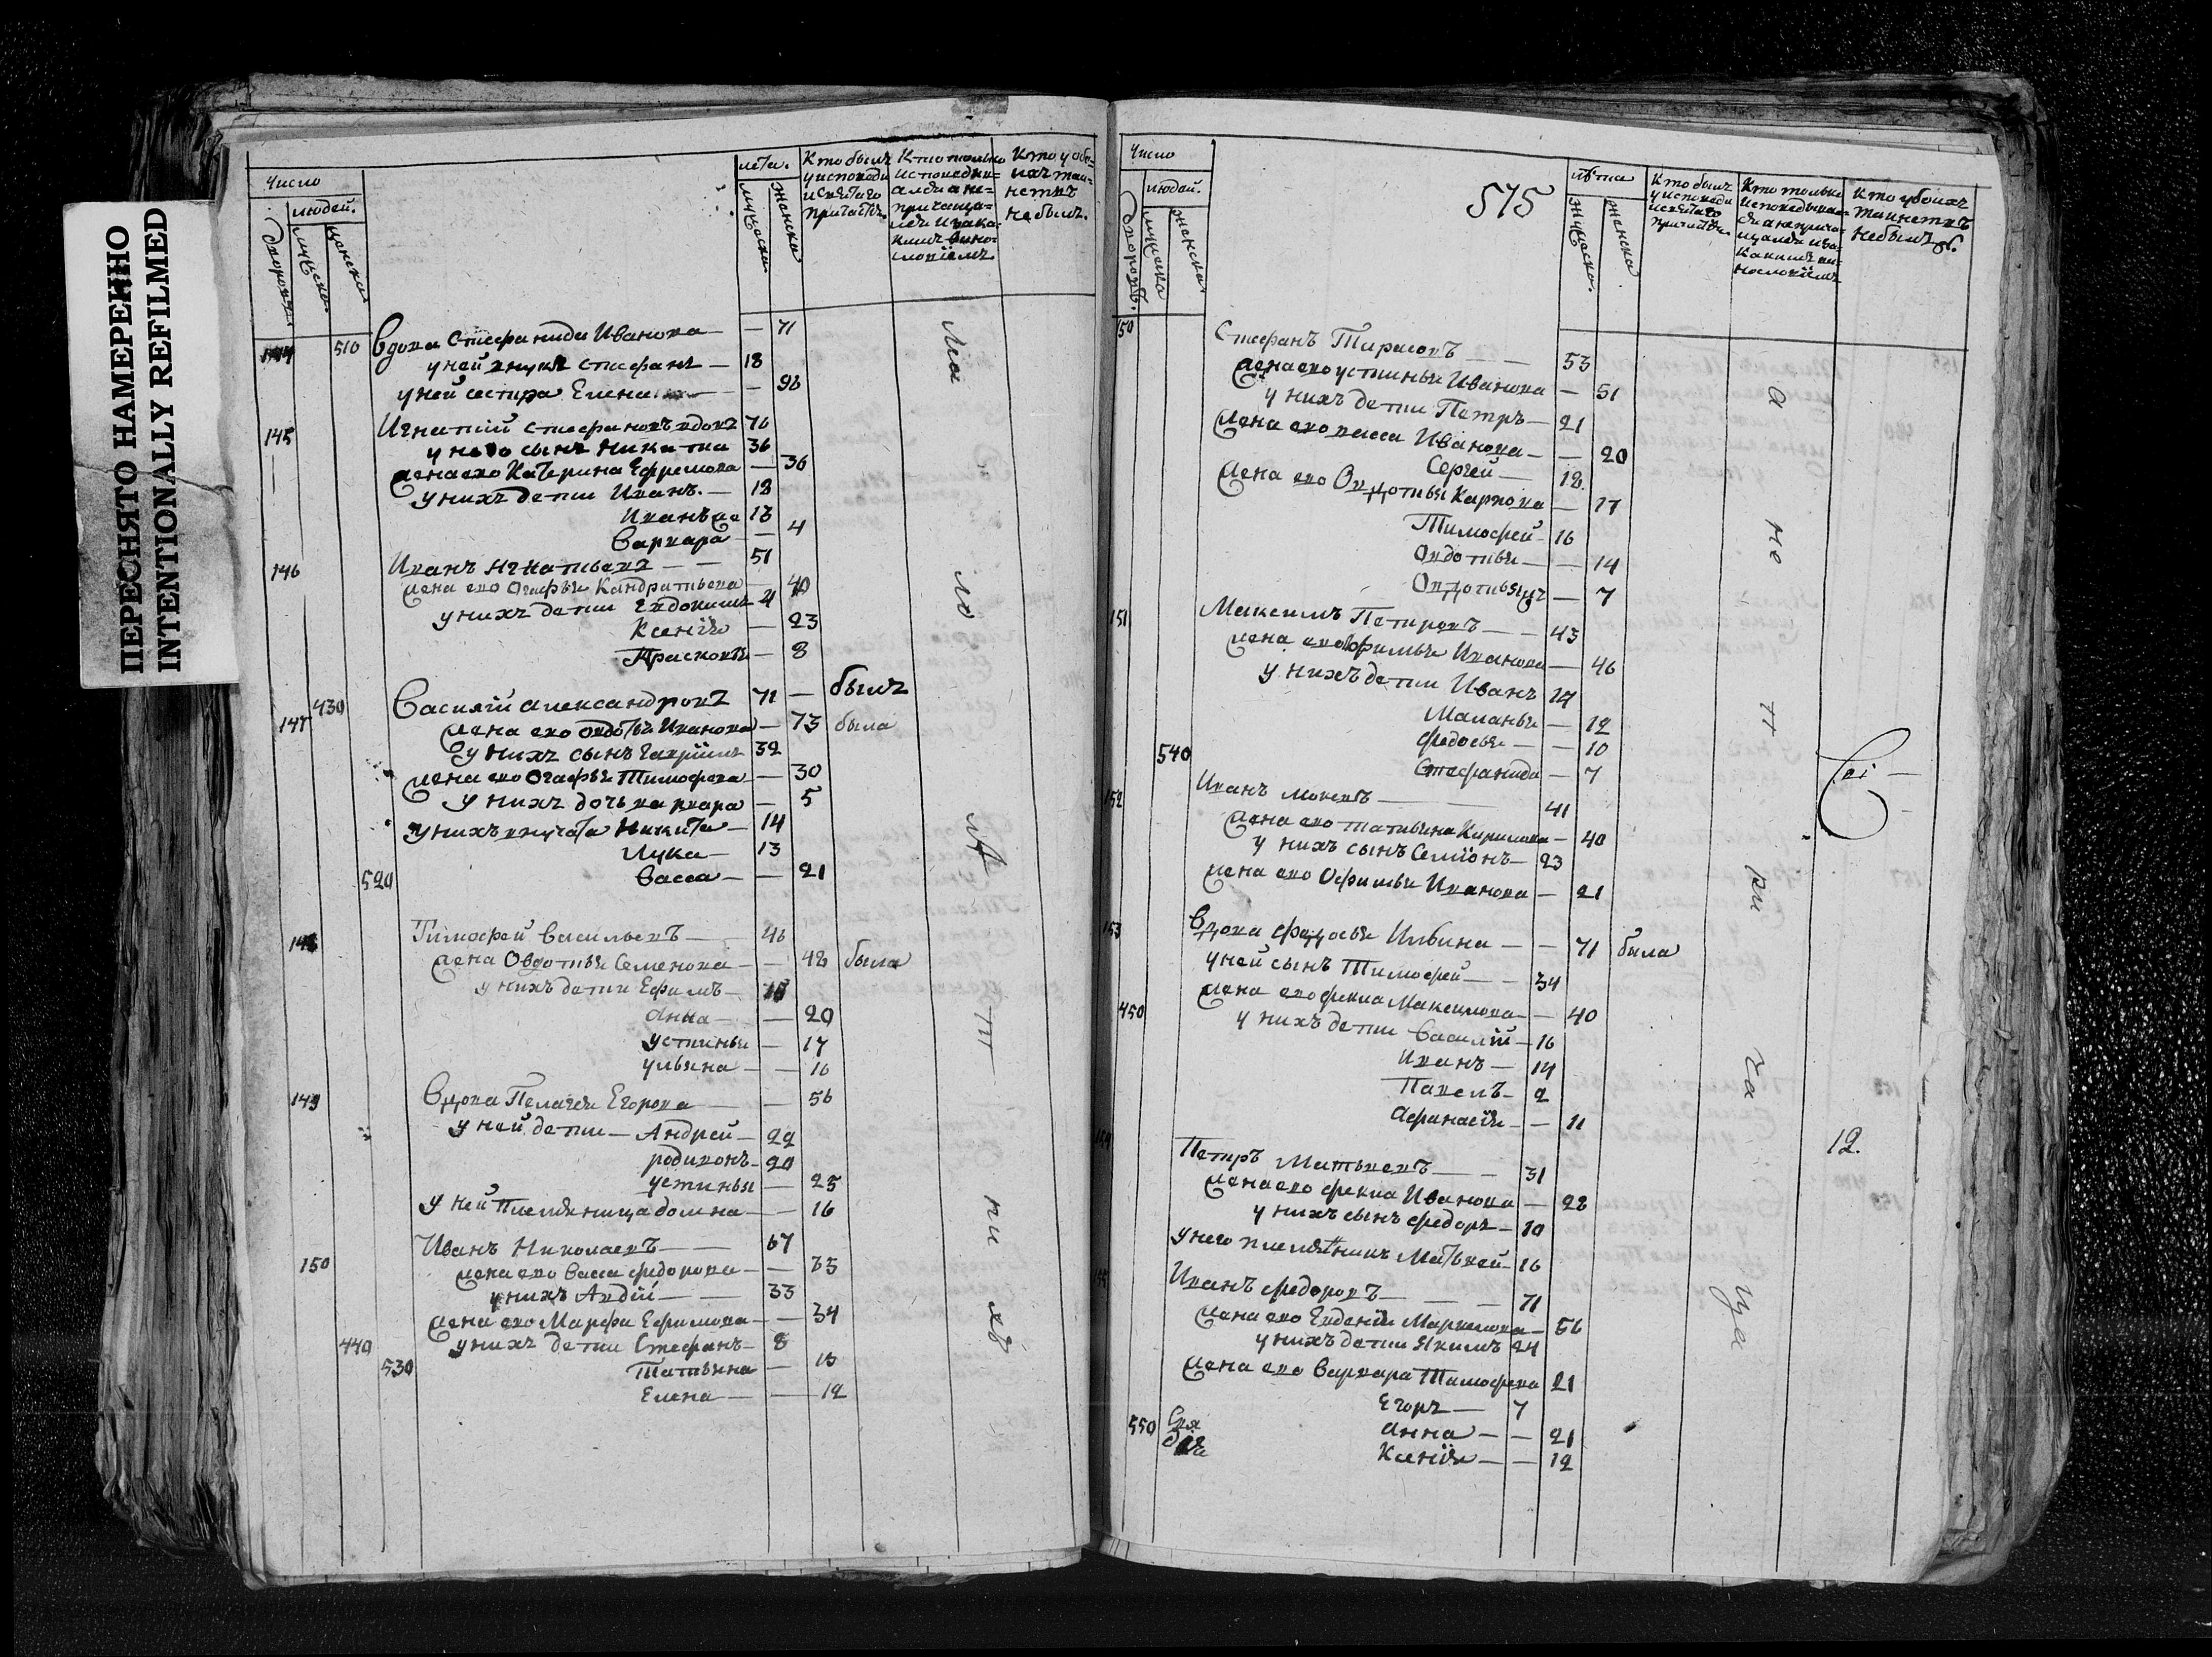 ПЕРЕСНЯТО НАМЕРЕННО
INTENTIONALLY REFILMED
Число
людей.
дворовъ.
мужеска.
женска.
лета.
мужеска
женска
Кто былъ у исповеди и святаго причастия.
Кто у обоихъ таинствъ не былъ.
144 510 Вдова Стефанида Иванова — — 71
у ней внукъ Стефанъ — 18
у ней сестра Елена —
145 Игнатий Стефановъ вдовъ 76
у него сынъ Никита 36
жена ево Катерина Ефремова — 36
у нихъ дети Иванъ. — 18
Иванъ же 13
Варвара — — 4
146 Иванъ Игнатьевъ — — 51
жена ево Огафья Кандратьева — 40
у нихъ дети Евдокимъ
Ксения — 23
Прасковья — 8
147 430 Василий Александровъ 71 — былъ
жена ево Овдотья Иванова — 73 была
у нихъ сынъ Гавриилъ 32
жена ево Огафья Тимофеева — 30
у нихъ дочь Варвара — 5
у нихъ внучата Никита — 14
Лука — 13
520 Васса — — 21
148 Тимофей Васильевъ — 46
жена Овдотья Семенова — — 48 была
у нихъ дети Ефимъ —
Анна — — 20
Устинья — 17
Ульяна — — 16
149 Вдова Пелагея Егорова — — 56
у ней дети — Андрей — 22
Родивонъ — 20
Устинья — 25
у ней племяница Домна — — 16
150 Иванъ Николаевъ — — 67
жена ево Васса Федорова — —
у нихъ Авдий — — 33
жена ево Марфа Ефимова — — 34
440 у нихъ дети Стефанъ — 8
530 Татьяна —
Елена — — 12
ма
ло
ле
т
ни
хъ
575
Число
людей.
дворовъ.
мужеска
женска
лѣта
мужеска.
женска
Кто былъ у исповеди и святаго причастия.
Кто у обоихъ таинствъ не былъ
150 Стефанъ Тарасовъ — — 53
жена ево Устинья Иванова — 51
у нихъ дети Петръ — 21
жена ево Васса Иванова — — 20
Сергей — 18.
жена ево Овдотья Карпова — 17
Тимофей — 16
Овдотья — — 14
Овдотья жъ — 7
151 Максимъ Петровъ — — 43
жена ево Офимья Иванова — 46
у нихъ дети Иванъ 17
Маланья — 12
Федосья — — 10
540 Стефанида — 7
152 Иванъ Мокеевъ — 41
жена ево Татьяна Кирилова — 40
у нихъ сынъ Семионъ — 23
жена ево Офимья Иванова — 21
153 Вдова Федосья Ильина — — 71 была
у ней сынъ Тимофей — — 34
жена ево Фекла Максимова — — 40
450 у нихъ дети Василий — 16
Иванъ — 14
Павелъ — 2
Афанасия — — 11
Петръ Матвеевъ — — 31
жена ево Фекла Иванова — 28
у нихъ сынъ Федоръ — 10
у него племянникъ Матвей — 16
155 Иванъ Федоровъ — — — 71
жена ево Евдения Маркелова — 56
у нихъ дети Якимъ 24
жена ево Варвара Тимофеева 21
Егоръ — 7
550 Анна — — 21
Ксения — — 12
а
не
п
ри
ча
ща
12.